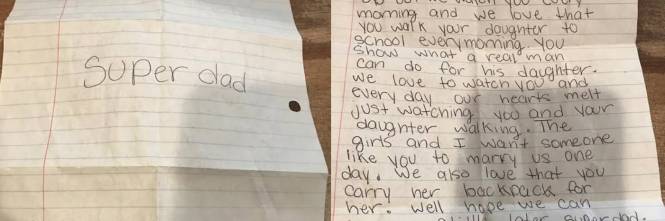 Super dad
morning and we love that
you walk your daughter to
school everymorning. You
show what a real man
can do for his daughter.
we love to watch you and
every day our hearts melt
just watching you and your
daughter walking. The
girls and I want someone
like you to marry us one
day. We also love that you
carry her backpack for
her. Well hope we can
later super dad.